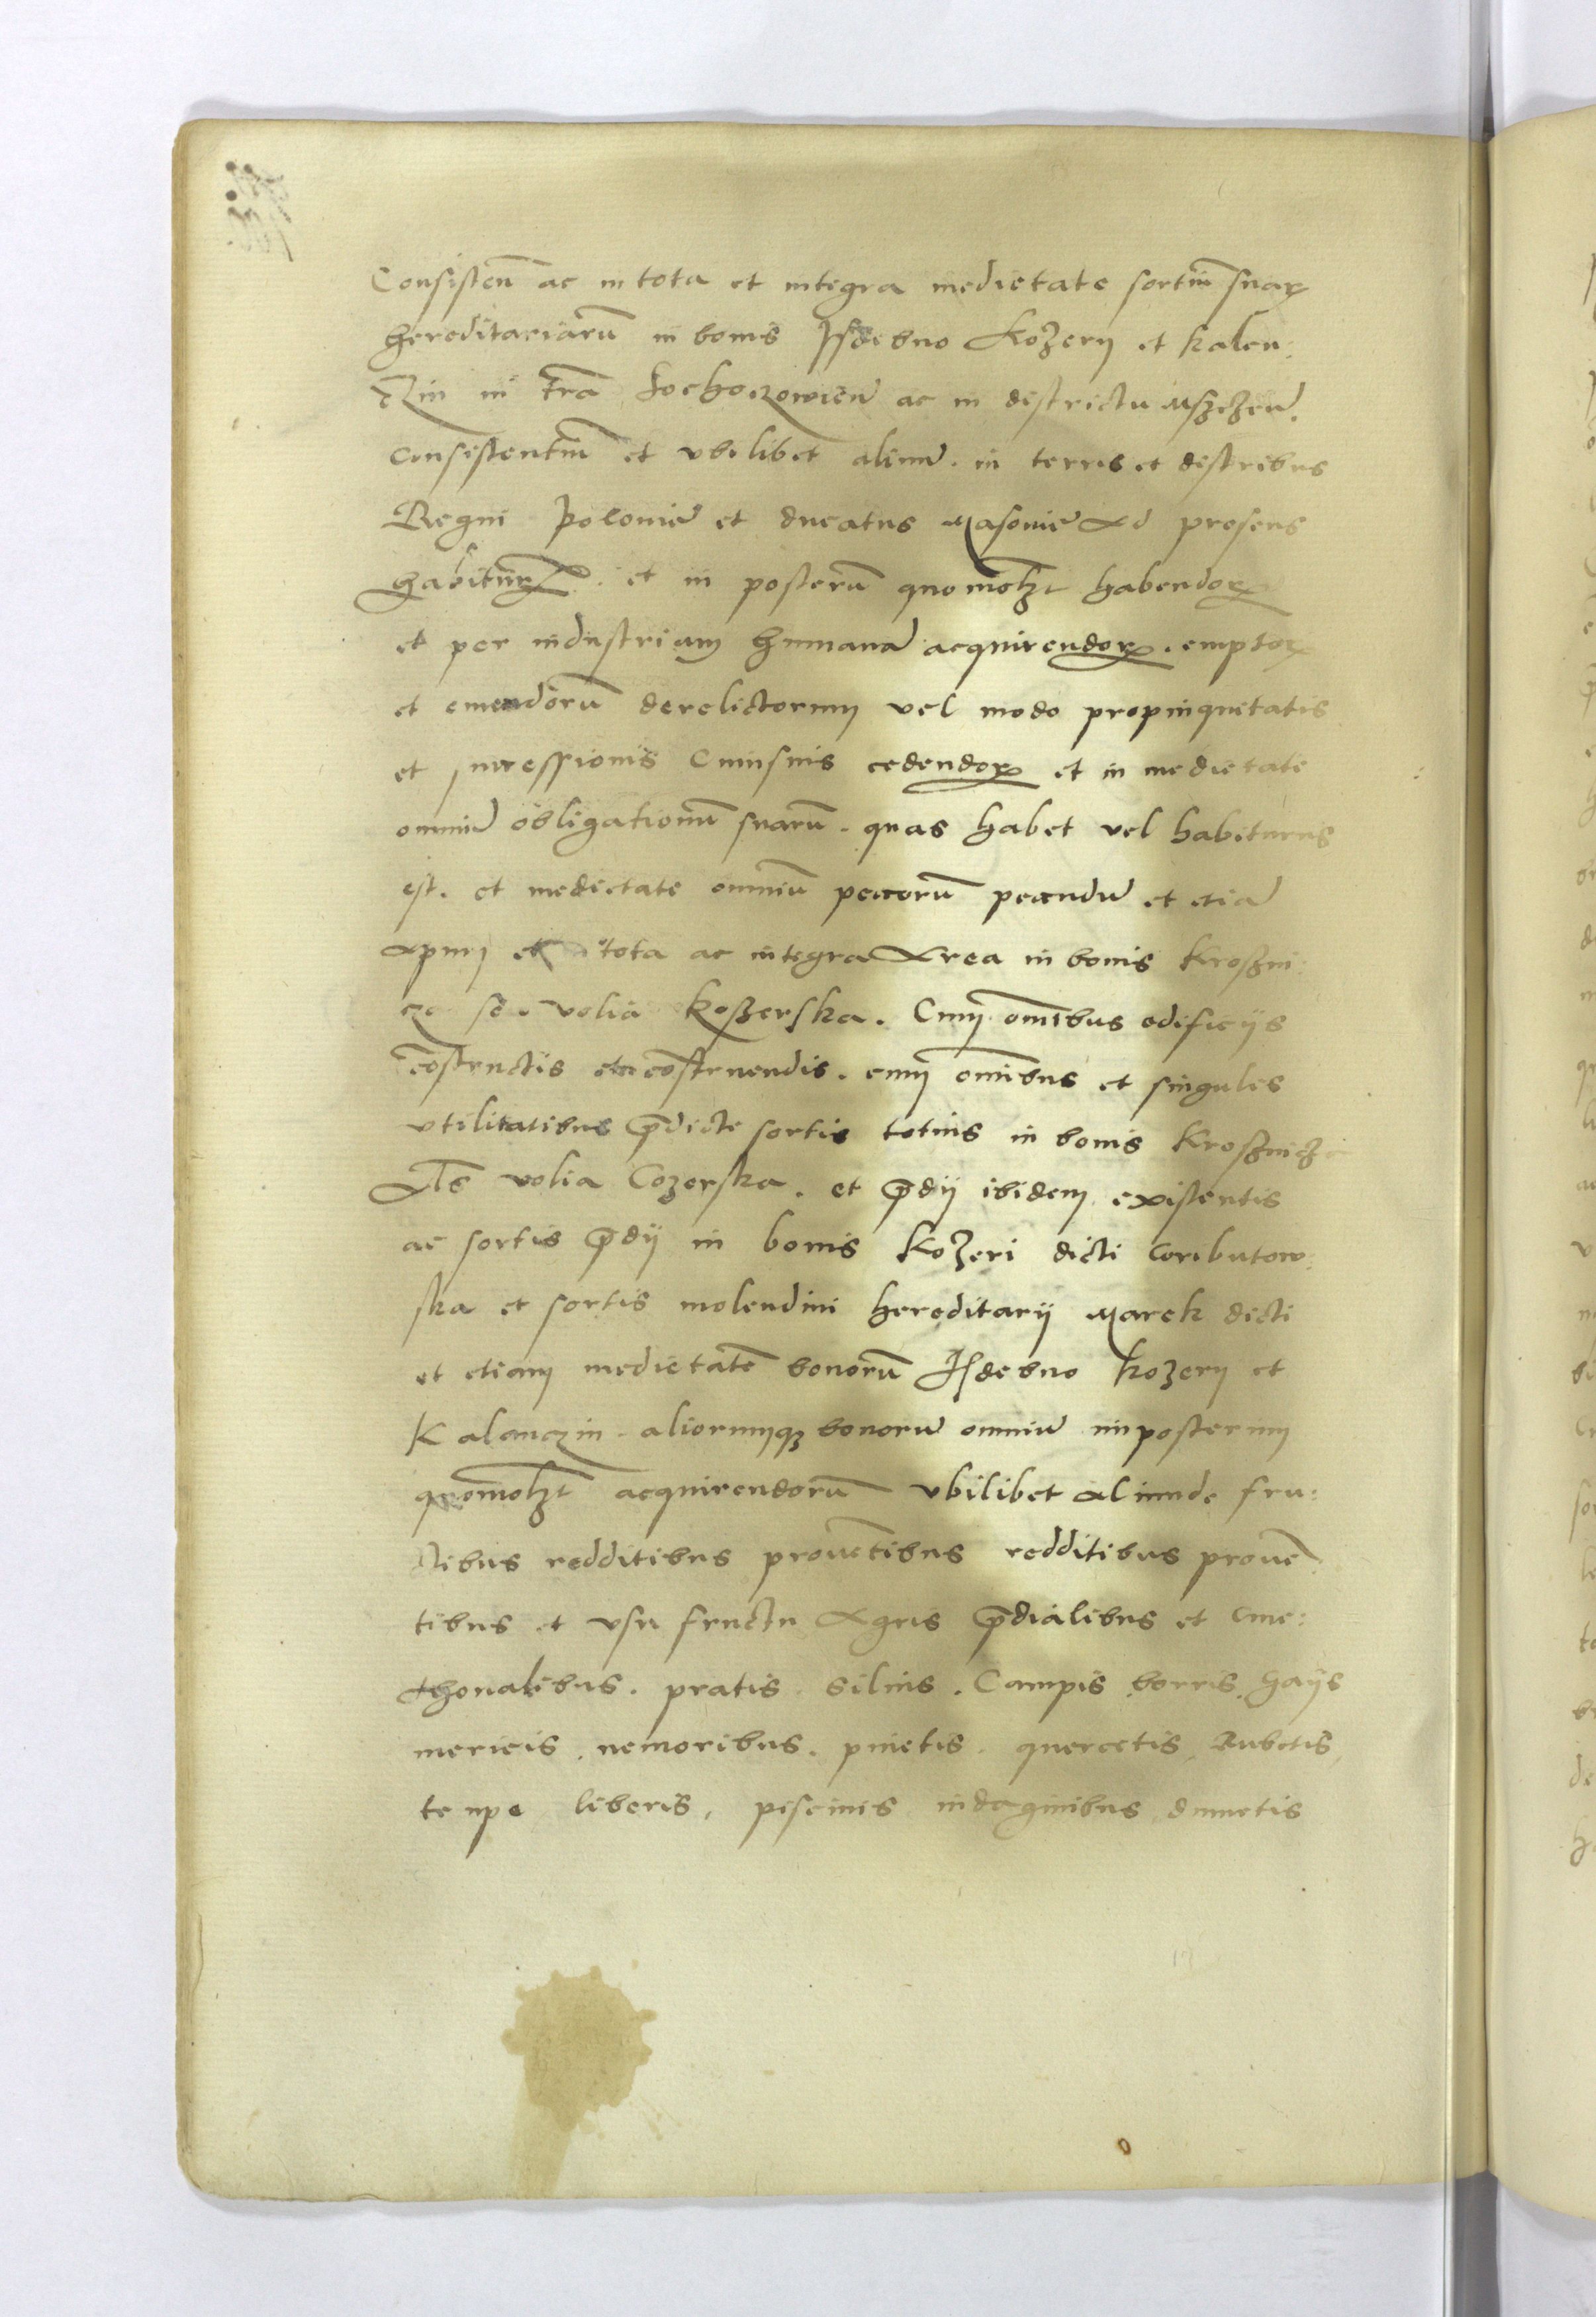 Consisteñ ac in tota et integra medietate sortiũ suaꝝ
hereditariarũ in bonis Isdebno Kozery et kalen:
czin in tr̃a Sochaczowień ac in districtu Msczczoń.
consistentiũ et vbilibet aliun̄. in terris et districtibus
Regni Polonie et ducatus Masouie Ad presens
habiturꝝ. et in posterũ quomolꝫt habendoꝝ
et per industriam humanã acquirendoꝝ. emptoꝝ
et emendorũ derelictorum vel modo propinquitatis
et successionis Cuiusuis cedendoꝝ et in medietate
omniũ obligationũ suarũ. quas habet vel habiturus
est. et medietate omniũ pecorũ pecudũ et etiã
apum et in tota ac integra Area in bonis Kroszni:
cza seu volia Kozerska. Cum om̃ibus edificijs
cõstructis et cõstruendis. cum om̃ibus et singulis
vtilitatibus p̃dicte sortis totius in bonis Kroszniczа
Als volia Cozerska. et p̃dij ibidem existentis
ac sortis p̃dij in bonis Kozeri dicti Coributow:
ska et sortis molendini hereditarij Marek dicti
et etiam medietatẽ bonorũ Isdebno Kozery et
Kalenczin. aliorumqꝫ bonorũ omniũ inposterum
quomolꝫt acquirendorũ vbilibet aliunde fru:
ctibus redditibus prouẽtibus redditibus prouẽ:
tibus et vsu fructu Agris p̃dialibus et cme:
thonalibus. pratis. Siluis. Campis borris, hays
mericis. nemoribus. pinetis. quercetis, Rubetis,
liberis, piscinis indaginibus dumetis